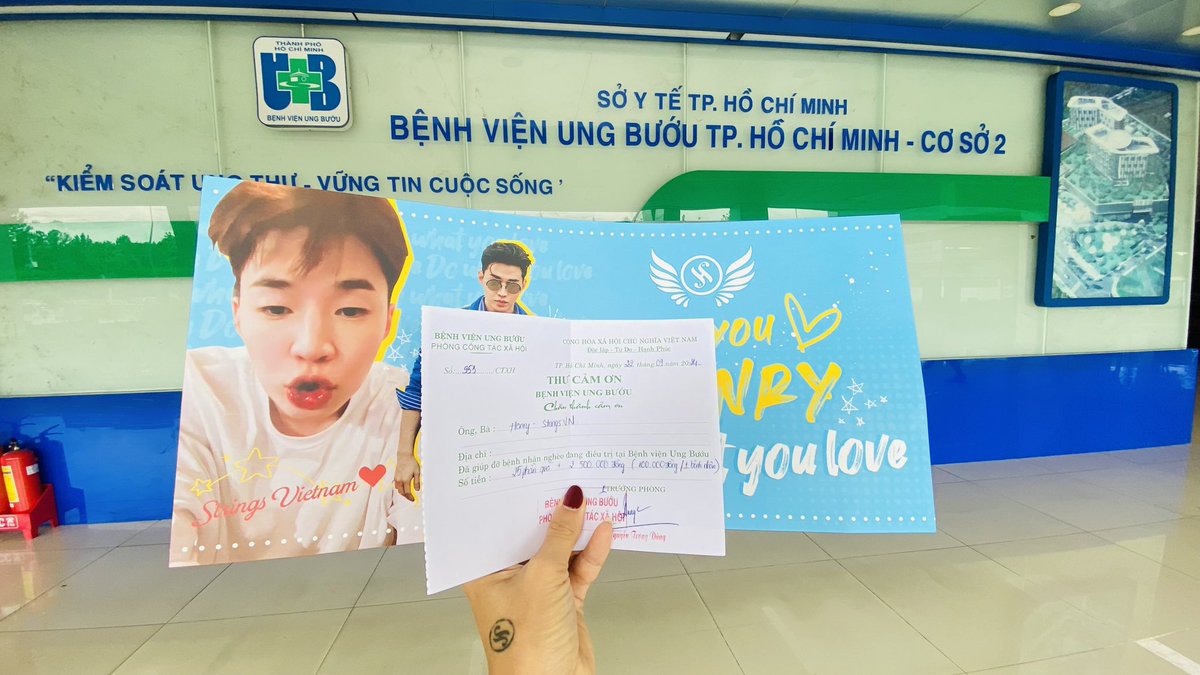 THÀNH PHỐ
HỒ CHÍ MINH
UB
BỆNH VIỆN UNG BƯỚU
SỞ Y TẾ TP. HỒ CHÍ MINH
BỆNH VIỆN UNG BƯỚU TP. HỒ CHÍ MINH - CƠ SỞ 2
“KIỂM SOÁT UNG THƯ - VỮNG TIN CUỘC SỐNG’
what you love
Do what you love
Strings Vietnam
YOU
NRY
t you love
BỆNH VIỆN UNG BƯỚU
PHÒNG CÔNG TÁC XÃ HỘI
Số: 953 /CTXH
CỘNG HÒA XÃ HỘI CHỦ NGHĨA VIỆT NAM
Độc lập - Tự Do - Hạnh Phúc
TP. Hồ Chí Minh, ngày 22 tháng 09 năm 20
THƯ CẢM ƠN
BỆNH VIỆN UNG BƯỚU
Chân thành cảm ơn
Ông, Bà : Henry - Strings VN
Địa chỉ :
Đã giúp đỡ bệnh nhân nghèo đang điều trị tại Bệnh viện Ung Bướu
Số tiền : 25 phần quà + 2 500.000 đồng (100.000 đồng / 1 bệnh nhân)
TRƯỞNG PHÒNG
BỆNH VIỆN UNG BƯỚU
PHÒNG CÔNG TÁC XÃ HỘI